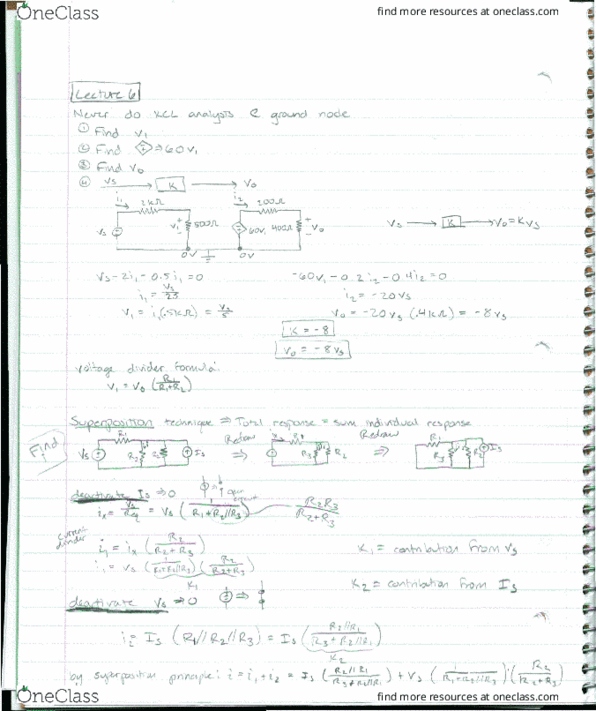 OneClass
find more resources at oneclass.com
Lecture 6
Never do KCL analysis @ ground node
① Find v₁
② Find ⇒ 60v₁
③ Find v₀
④ Vs → K → v₀
i₁ 2kΩ i₂ 200Ω
Vs v₁ 500Ω 60v₁ 400Ω v₀ Vs → K → v₀=Kvs
0V 0V
Vs-2i₁-0.5i₁=0 -60v₁-0.2i₂-0.4i₂=0
i₁ = Vs/2.5 i₂ = -20vs
v₁ = i₁(.5kΩ) = Vs/5 v₀ = -20vs (.4kΩ) = -8vs
K = -8
v₀ = -8vs
voltage divider formula:
Superposition technique ⇒ Total response = sum individual response
Find i
Redraw Redraw
Vs R₁ R₃ R₂ Is ⇒ R₁ R₃ R₂ ⇒ R₁ R₃ Is
deactivate Is ⇒ 0 open
iₓ = Vs/Req = Vs (1/(R₁+R₂//R₃)) R₂R₃/(R₂+R₃)
current divider
i₁ = iₓ (R₂/(R₂+R₃)) K₁ = contribution from Vs
i₁ = Vs (1/(R₁+R₂//R₃)) (R₂/(R₂+R₃))
K₁ K₂ = contribution from Is
deactivate Vs ⇒ 0 ⇒
i₂ = Is (R₁//R₂//R₃) = Is (R₂//R₁/(R₃+R₂//R₁))
K₂
by superposition principle: i = i₁+i₂ = Is (R₂//R₁/(R₃+R₂//R₁)) + Vs (1/(R₁+R₂//R₃))·(R₂/(R₂+R₃))
OneClass
find more resources at oneclass.com